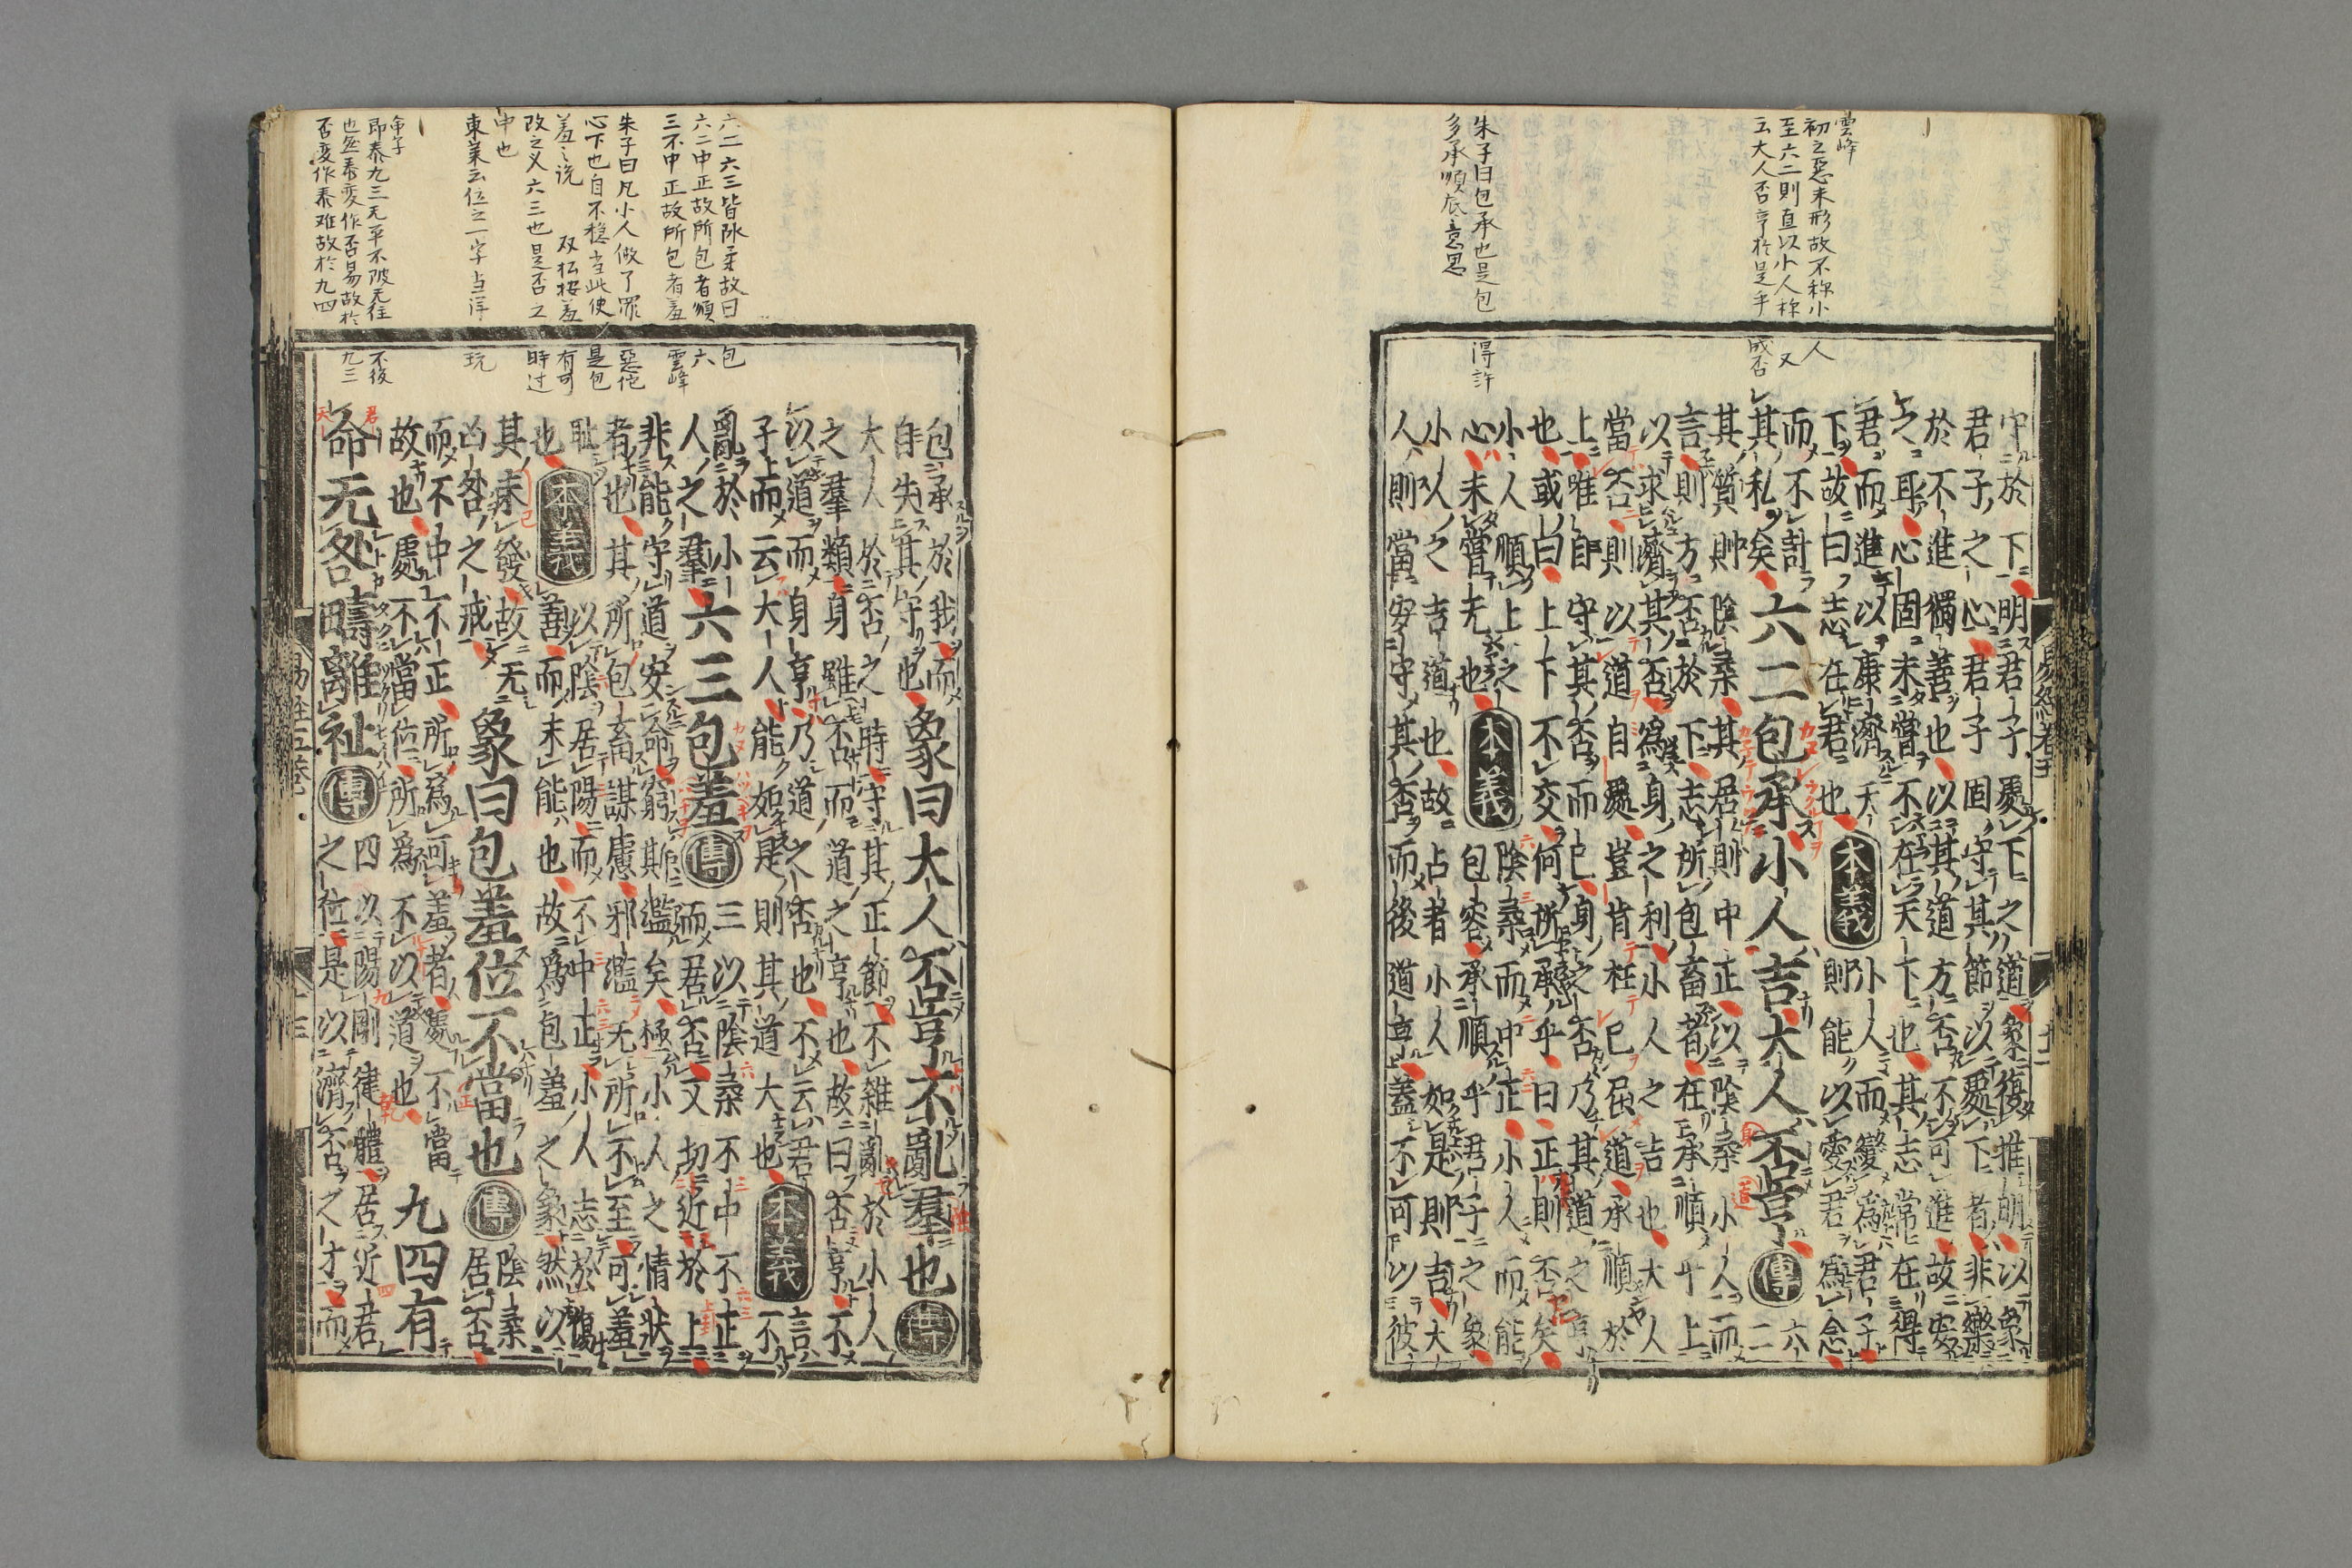 雲峰
初之惡未形故不称小人
至六二則直以小人称又
云大人否亨於是乎成否
朱子曰包承也是包得許
多承順底意思
守於下明君子處下之道象復推明以象
君子之心君子固守其節以處下者非樂
於不進獨善也以其道方否不可進故安
之耳心固未嘗不在天下也其志常在得
君而進以康濟天
下故曰志在君也
本義
小人而變爲君子
則能以愛君爲念
而不計
其私矣
六二包承小人吉大人否亨
傳
六
二
其質則陰柔其居則中正以陰柔小人而
言則方否於下志所包畜者在承順乎上
以求濟其否爲身之利小人之吉也大人
當否則以道自處豈肯枉己屈道承順於
上唯自守其否而已身之否乃其道之亨
也或曰上下不交何所承乎曰正則否矣
小人順上之
心未嘗无也
本義
陰柔而中正小人而能
包容承順乎君子之象
小人之吉道也故占者小人如是則吉大
人則當安守其否而後道亨蓋不可以彼
六二六三皆陰柔故曰包
六二中正故所包者順六
三不中正故所包者羞雲峰
朱子曰凡小人做了罪惡他
心下也自不穏当此便是包
羞之説 双松按羞有可
改之义六三也是否之時过
中也
東莱云位之一字当詳玩
即泰九三无平不陂无往不復
也盖泰変作否易故於九三
否変作泰难故於九四
包承於我而
自失其守也
象曰大人否亨不亂羣也
傳
大人於否之時守其正節不雜亂於小人
之羣類身雖否而道之亨也故曰否亨不
以道而身亨乃道之否也不云君
子而云大人能如是則其道大也
本義
言
不
亂於小
人之羣
六三包羞
傳
三以陰柔不中不正
而居否又切近於上
非能守道安命窮斯濫矣極小人之情狀
者也其所包畜謀慮邪濫无所不至可羞
耻
也
本義
以陰居陽而不中正小人志於傷
善而未能也故爲包羞之象然以
其未發故无
凶咎之戒
象曰包羞位不當也
傳
陰柔
居否
而不中不正所爲可羞者處不當
故也處不當位所爲不以道也
九四有
命无咎疇離祉
傳
四以陽剛健體居近君
之位是以濟否之才而